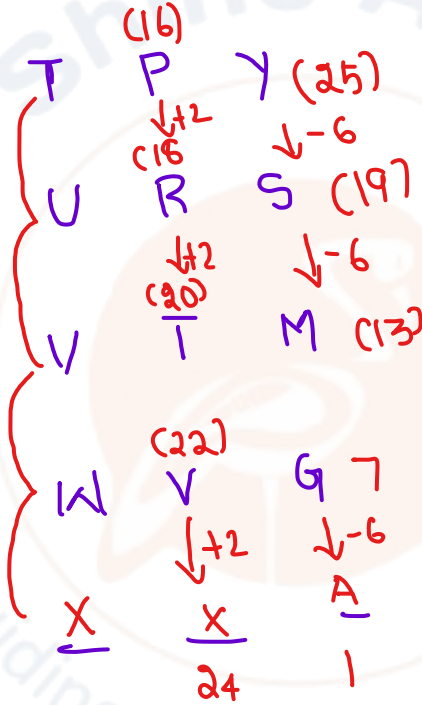 (16)
T P Y (25)
+2 -6
(18
U R S (19)
+2 -6
(20)
V T M (13)
(22)
W V G 7
+2 -6
X X A
24 1